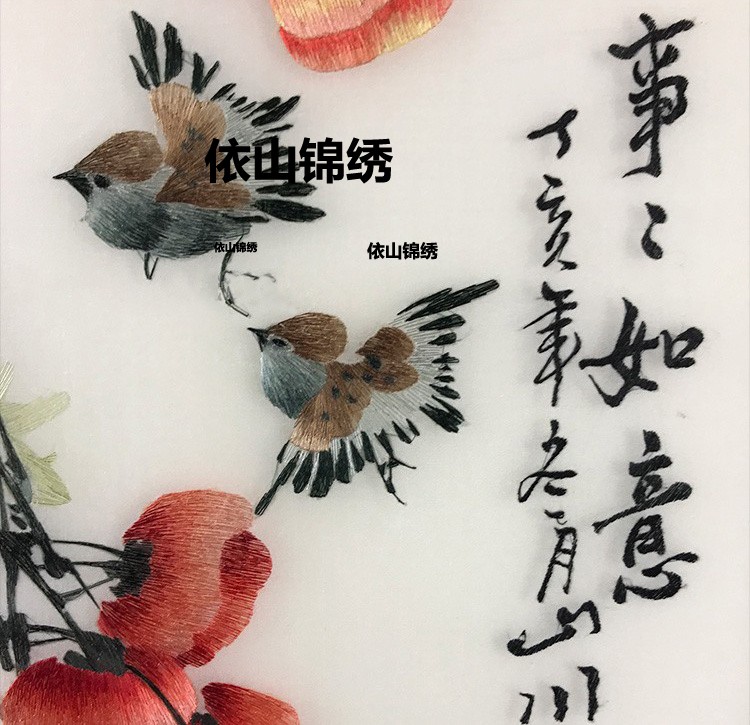 事〻如意
丁亥年冬月山川
依山锦绣
依山锦绣
依山锦绣